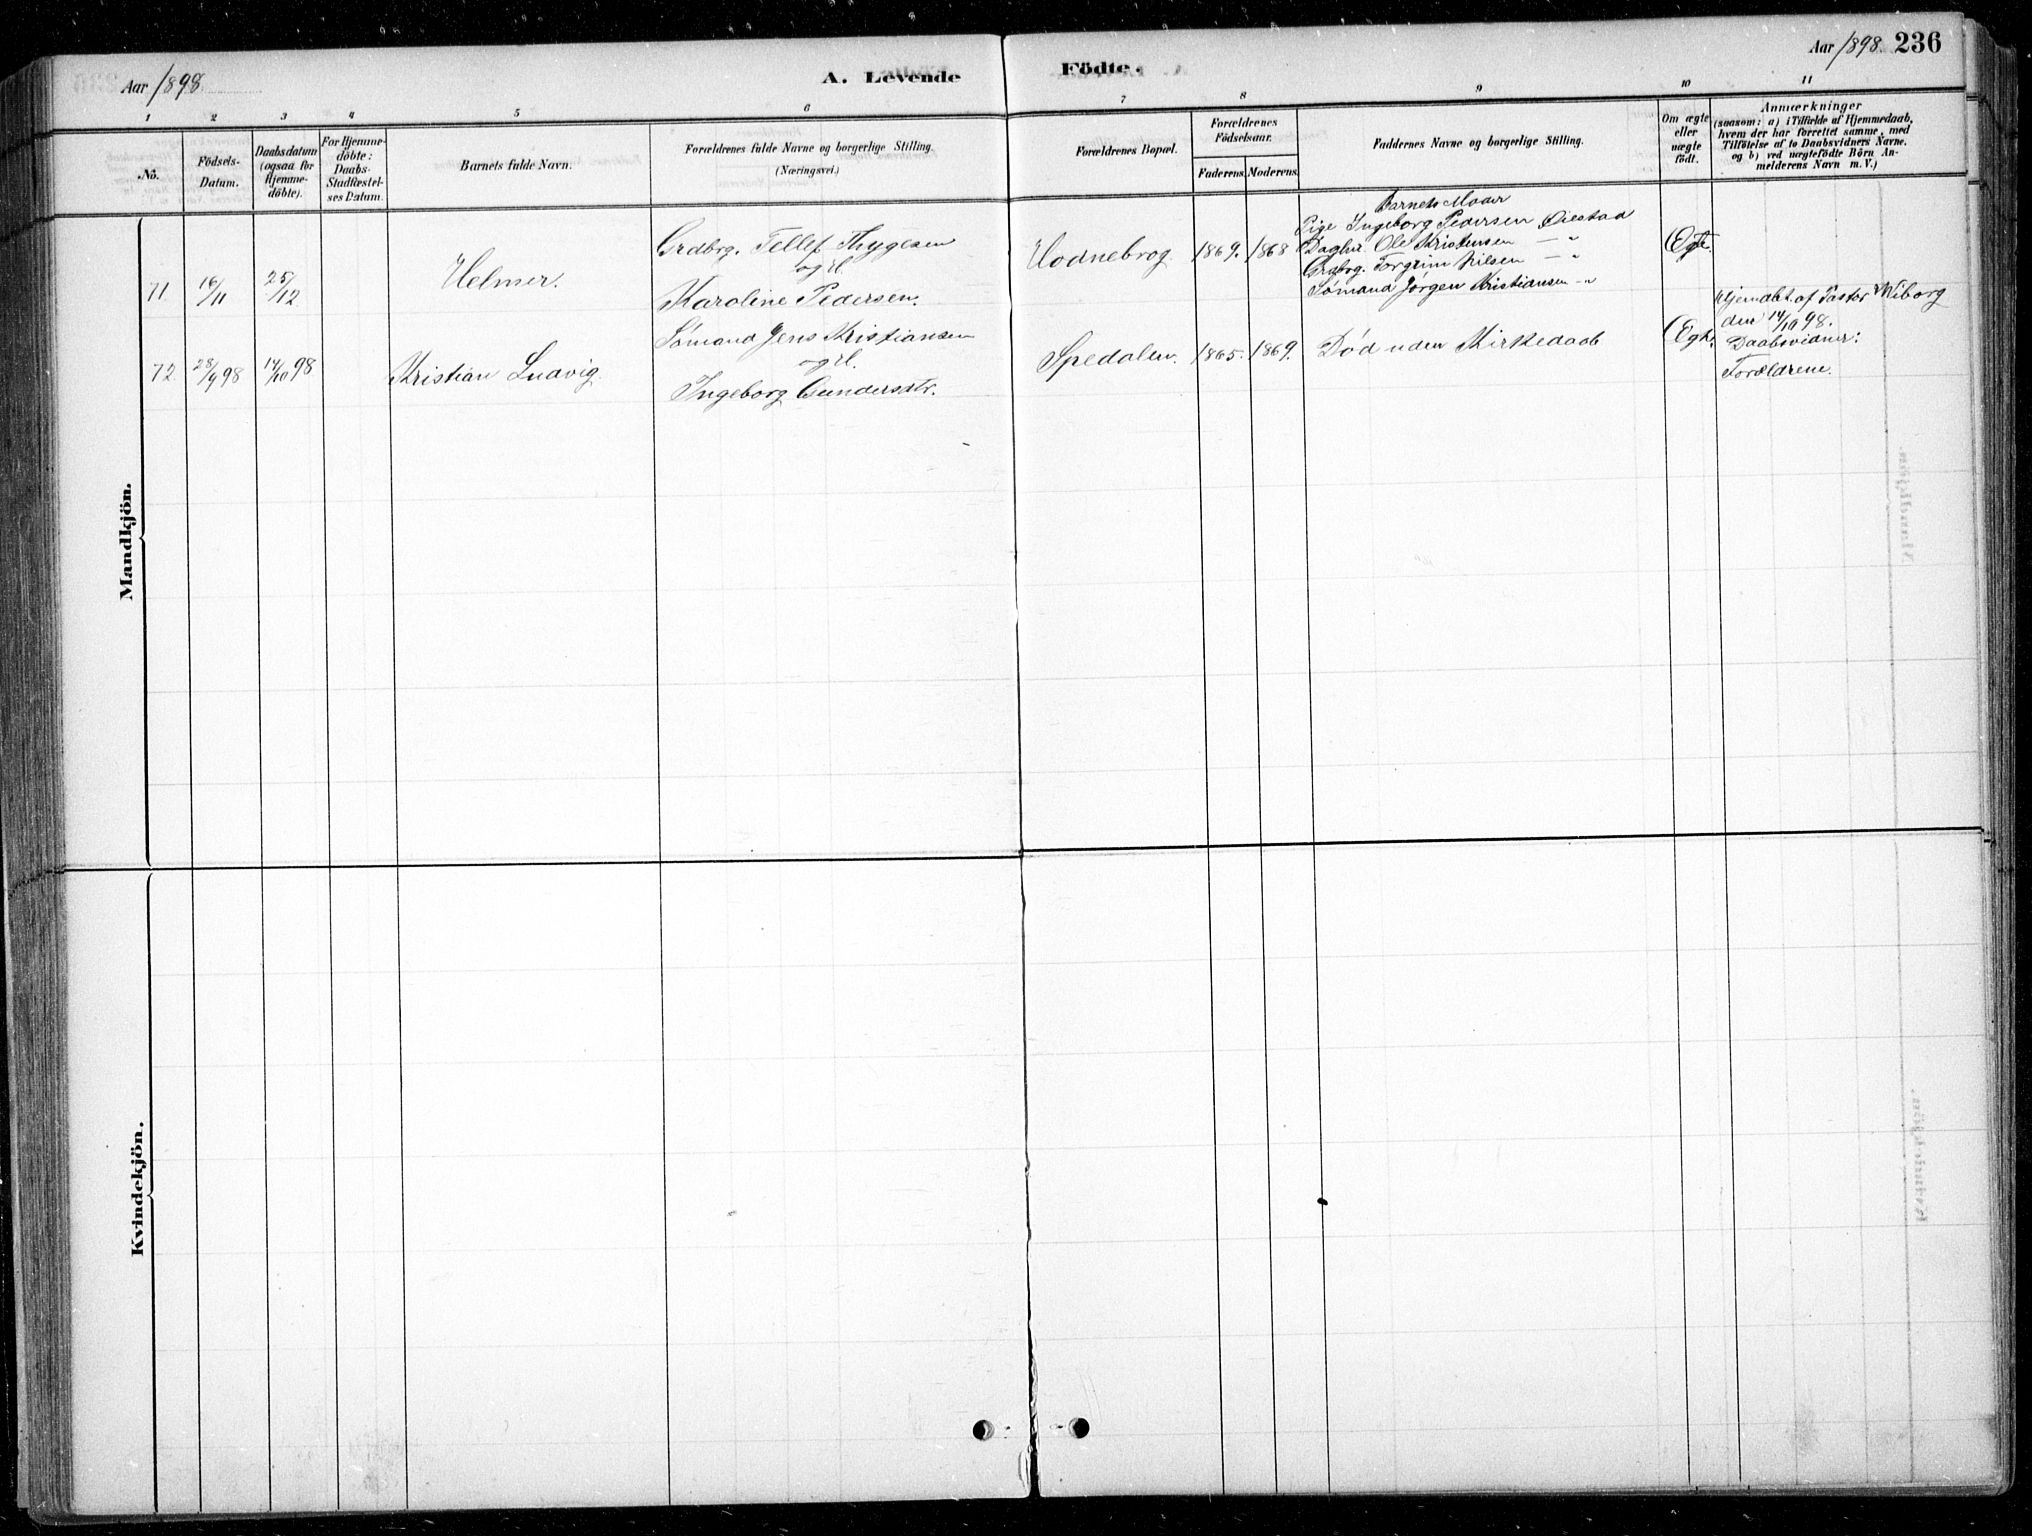 Aar 1898.
A. Levende
Födte.
Aar 1898. 236
1 2 3 4 5 6 7 8 9 10 11
No.
Födsels-
Datum.
Daabsdatum
(ogsaa for
Hjemme-
döbte).
For Hjemme-
döbte:
Daabs-
Stadfæstel-
ses Datum.
Barnets fulde Navn.
Forældrenes fulde Navne og borgerlige Stilling.
(Næringsvei.)
Forældrenes Bopæl.
Forældrenes
Födselsaar.
Faderens. Moderens.
Faddernes Navne og borgerlige Stilling.
Om ægte
eller
uægte
født.
Anmærkninger
(saasom: a) i Tilfælde af Hjemmedaab,
hvem der har forrettet samme, med
Tilföielse af to Daabsvidners Navne,
og b) ved uægtefödte Börn An-
melderens Navn m. V.)
Mandkjön.
71. 16/11 25/12
Helmer.
Grdbrg. Tellef Thygesen
og H.
Karoline Pedersen.
Hodnebrog 1869. 1868
Barnets Moder
Pige Ingeborg Pedersen Øiestad
Daglur. Ole Kristensen — "
Grdbrg. Torgrim Nilsen — "
Sømand Jørgen Kristiansen — "
Egte.
72. 28/9 98 14/10 98
Kristian Ludvig.
Sømand Jens Kristiansen
og H.
Ingeborg Gundersdtr.
Spedalen. 1865. 1869.
Død uden Kirkedaab
Egte.
Hjemdbt. af Pastor Wiborg
den 14/10 98.
Daabsvidner:
Forældrene.
Kvindekjön.